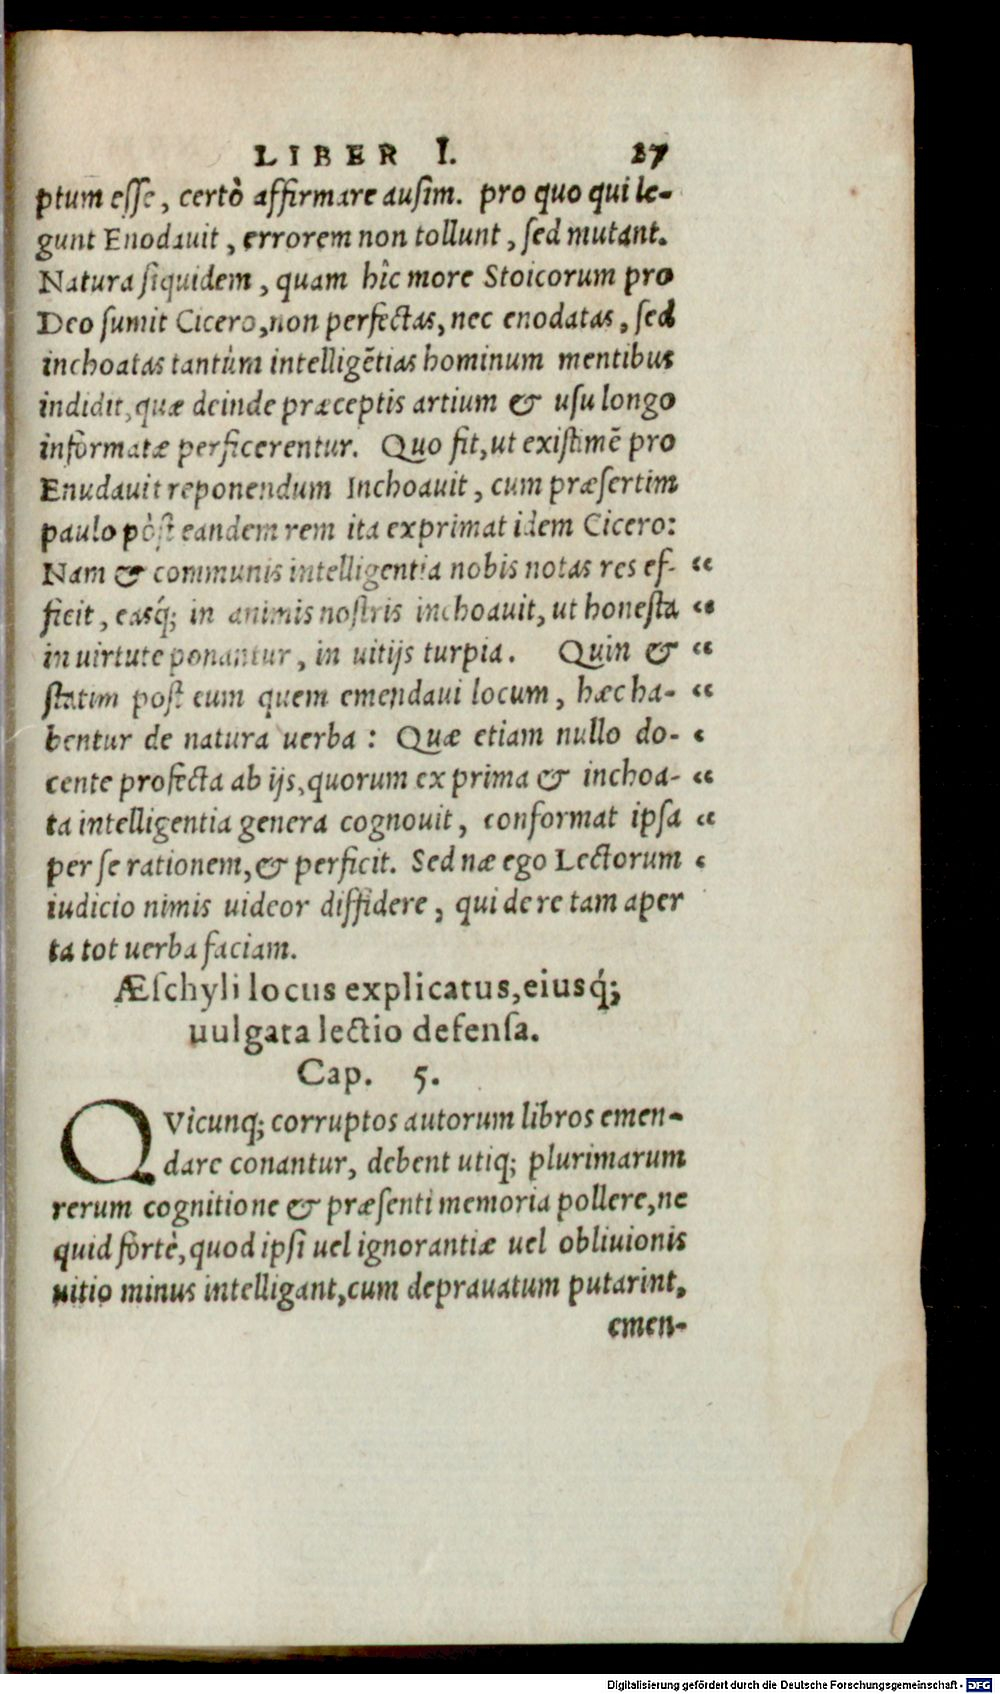 LIBER I. 27
ptum esse, certò affirmare ausim. pro quo qui le-
gunt Enodauit, errorem non tollunt, sed mutant.
Natura siquidem, quam hîc more Stoicorum pro
Deo sumit Cicero, non perfectas, nec enodatas, sed
inchoatas tantùm intelligētias hominum mentibus
indidit, quæ deinde præceptis artium & usu longo
informatæ perficerentur. Quo fit, ut existimē pro
Enudauit reponendum Inchoauit, cum præsertim
paulo pòst eandem rem ita exprimat idem Cicero:
Nam & communis intelligentia nobis notas res ef- “
ficit, easq́; in animis nostris inchoauit, ut honesta “
in uirtute ponantur, in uitijs turpia. Quin & “
statim post eum quem emendaui locum, hæc ha- “
bentur de natura uerba: Quæ etiam nullo do- ‘
cente profecta ab ijs, quorum ex prima & inchoa- “
ta intelligentia genera cognouit, conformat ipsa “
per se rationem, & perficit. Sed næ ego Lectorum ‘
iudicio nimis uideor diffidere, qui de re tam aper
ta tot uerba faciam.
Æschyli locus explicatus, eiusq́;
uulgata lectio defensa.
Cap. 5.
QVicunq; corruptos autorum libros emen-
dare conantur, debent utiq; plurimarum
rerum cognitione & præsenti memoria pollere, ne
quid fortè, quod ipsi uel ignorantiæ uel obliuionis
uitio minus intelligant, cum deprauatum putarint,
emen-
Digitalisierung gefördert durch die Deutsche Forschungsgemeinschaft - DFG